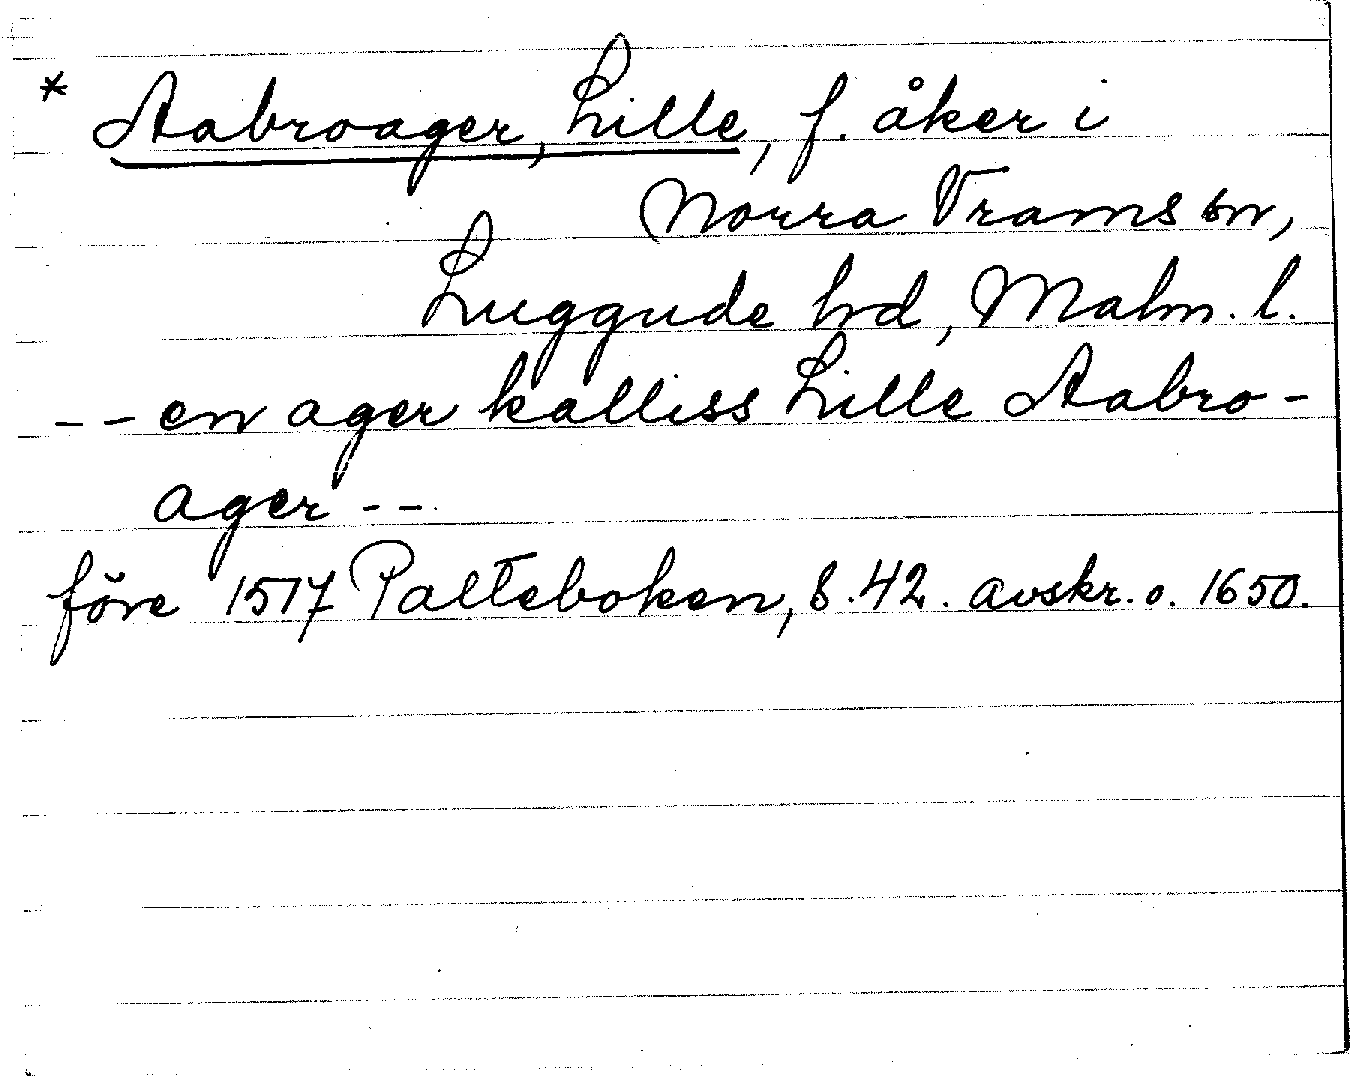 * Aabroager, Lille, f. åker i
Norra Vrams sn,
Luggude hd, Malm. l.
-- en ager kalliss Lille Aabro-
ager --.
före 1517 Palteboken, s. 42. avskr. o. 1650.